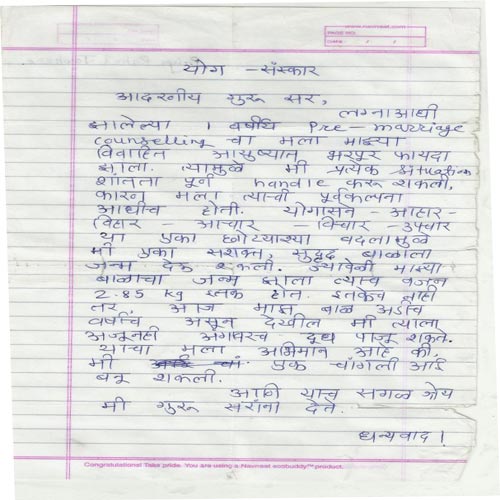 www.navneet.com
PAGE NO.
DATE: / /
योग - संस्कार
आदरणीय गुरू सर,
लग्नाआधी
झालेल्या १ वर्षीय Pre - marriage
counselling चा मला माझ्या
विवाहित आयुष्यात भरपूर फायदा
झाला. त्यामुळे मी प्रत्येक situation
शांतता पूर्ण handle करू शकली,
कारन मला त्याची पूर्वकल्पना
आधीच होती. योगासन - आहार -
विहार - आचार - विचार - उपचार
या एका छोट्याश्या बदलामुळे
मी एका सशक्त, सुदृढ बाळाला
जन्म देऊ शकली. ज्यावेळी माझ्या
बाळाचा जन्म झाला त्याच वजन
2.85 kg इतक होत. इतकच नाही
तर, आज माझ बाळ अडीच
वर्षाच असून देखील मी त्याला
अजूनही अंगावरच दूध पाजू शकते.
याचा मला अभिमान आहे की,
मी एक चांगली आई
बनू शकली.
आणि याच सगळ श्रेय
मी गुरू सरांना देते.
धन्यवाद !
Congratulations! Take pride. You are using a Navneet ecobuddy™ product.